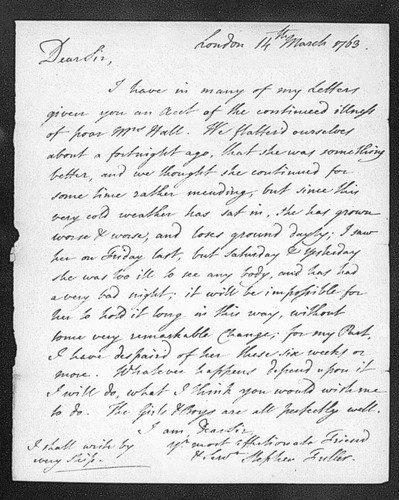 London 14th March 1763.
Dear Sir,
I have in many of my Letters
given you an Acct of the continued illness
of poor Mrs Hall. We flatter'd ourselves
about a fortnight ago, that she was something
better, and we thought she continued for
some time rather mending, but since this
very cold weather has sat in, she has grown
worse & worse, and loses ground dayly; I saw
her on Friday last, but Saturday & Yesterday
she was too ill to see any body, and has had
a very bad night; it will be impossible for
her to hold it long in this way, without
some very remarkable Change; for my Part,
I have despaired of her these six weeks or
more. Whatever happens depend upon it
I will do, what I think you would wish me
to do. The Girls & Boys are all perfectly well.
I am Dear Sir
yr. most affectionate Friend
& Servt. Stephen Fuller.
I shall write by
every Ship.